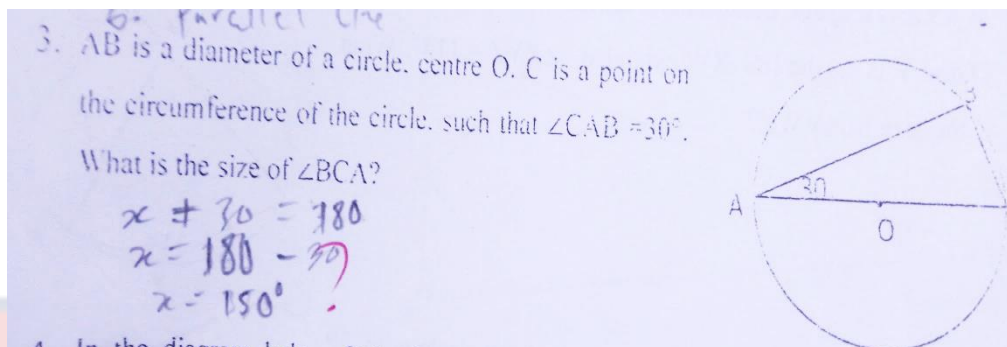 6. parallel line
3. AB is a diameter of a circle, centre O. C is a point on
the circumference of the circle, such that ∠CAB =30°.
What is the size of ∠BCA?
x + 30 = 180
x = 180 - 30
x = 150° ?
B
30
A
O
In the